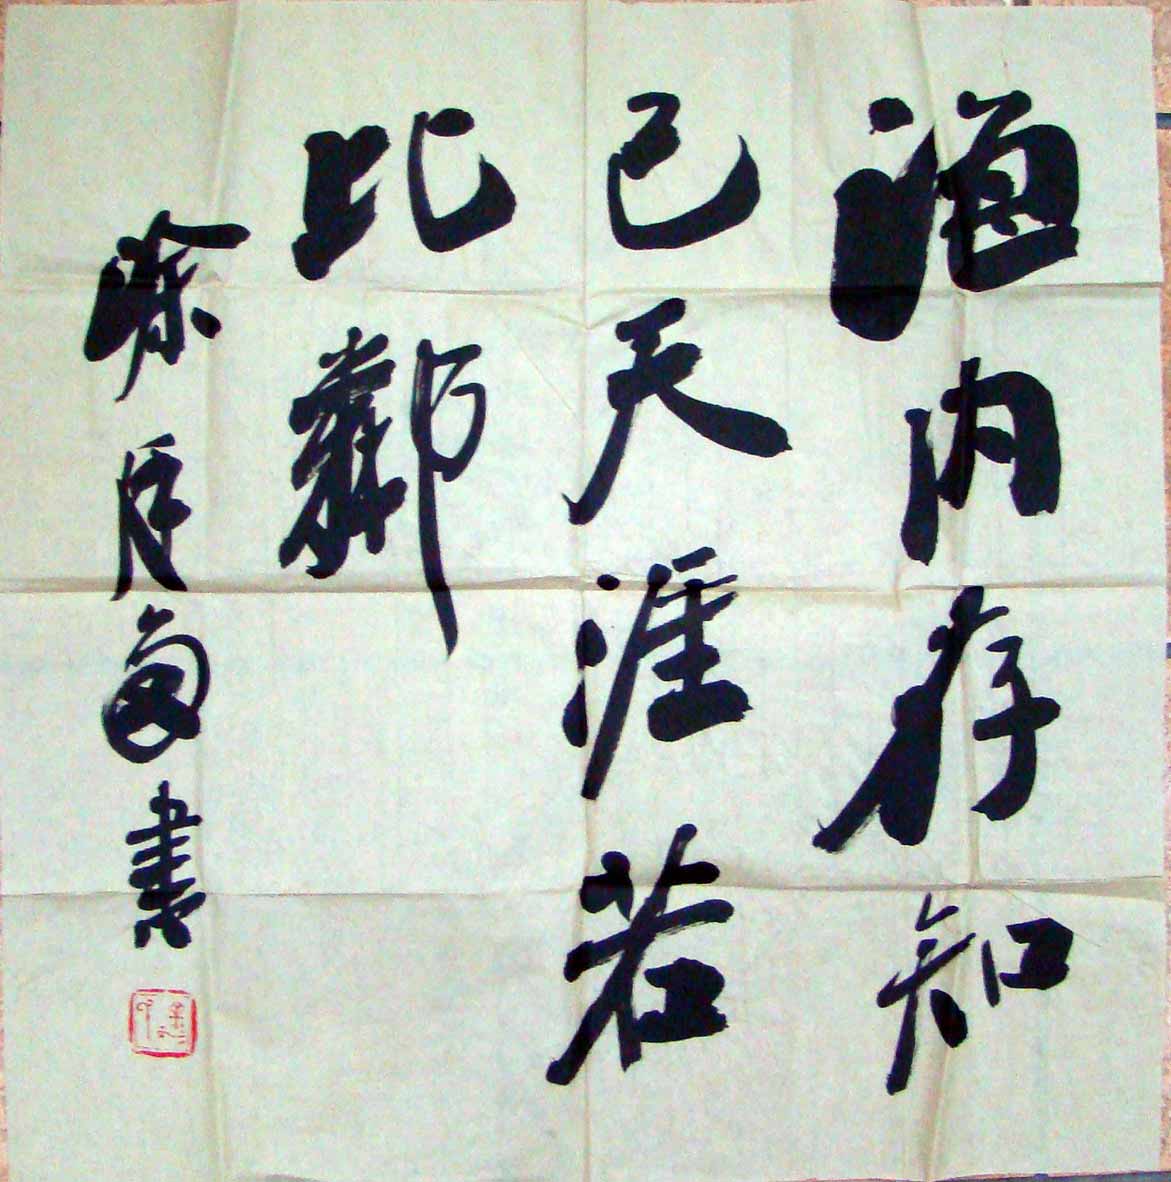 海内存知
己天涯若
比鄰
書